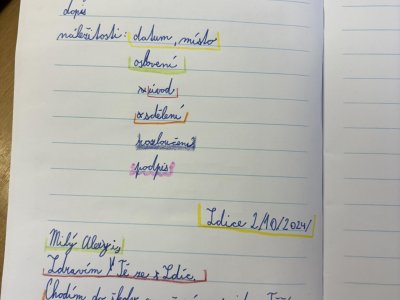 dopis
náležitosti: datum, místo
oslovení
úvod
sdělení
rozloučení
podpis
Zdice 2/10/2024/
Milý Alexyis,
Zdravím Tě ze Zdic.
Chodím do